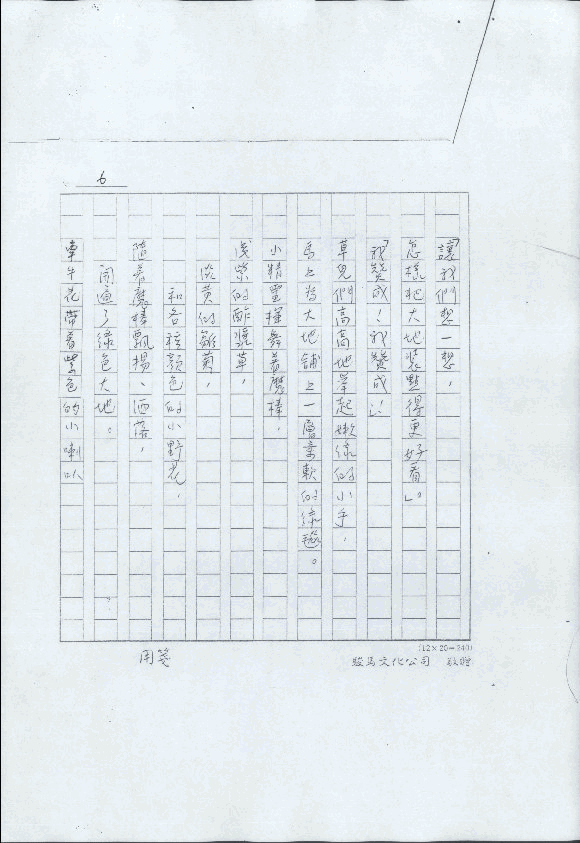 6
「讓我們想一想，
怎樣把大地裝點得更好看」。
「我贊成！我贊成！」
草兒們高高地舉起嫩綠的小手，
馬上為大地鋪上一層柔軟的綠毯。
小精靈揮舞著魔棒，
淺紫的酢漿草，
淡黃的雛菊，
和各種顏色的小野花，
隨著魔棒飄揚、洒落，
開遍了綠色大地。
牽牛花帶著紫色的小喇叭
(12×20=240)
駿馬文化公司 敬贈
用箋